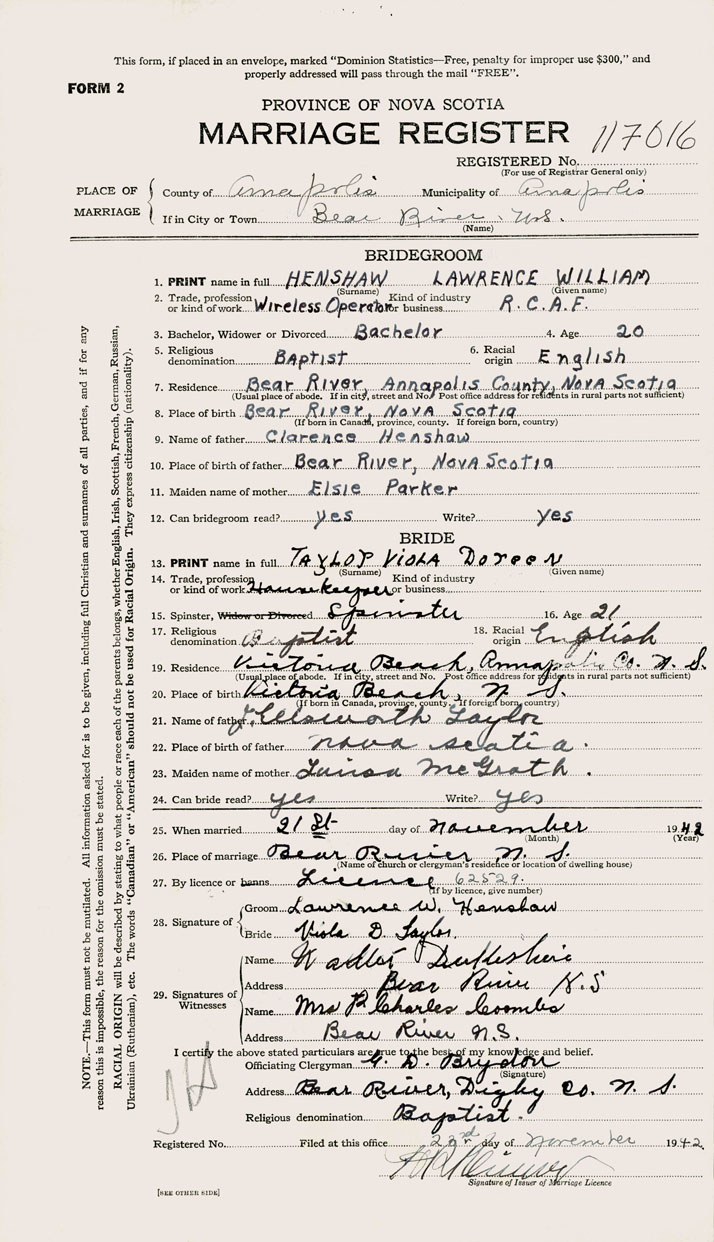 This form, if placed in an envelope, marked "Dominion Statistics—Free, penalty for improper use $300," and
properly addressed will pass through the mail "FREE".
FORM 2
PROVINCE OF NOVA SCOTIA
MARRIAGE REGISTER 117016
REGISTERED No.
(For use of Registrar General only)
PLACE OF MARRIAGE
County of Annapolis Municipality of Annapolis
If in City or Town Bear River N.S.
(Name)
BRIDEGROOM
1. PRINT name in full HENSHAW LAWRENCE WILLIAM
(Surname) (Given name)
2. Trade, profession or kind of work Wireless Operator Kind of industry or business R.C.A.F.
3. Bachelor, Widower or Divorced Bachelor 4. Age 20
5. Religious denomination Baptist 6. Racial origin English
7. Residence Bear River, Annapolis County, Nova Scotia
(Usual place of abode. If in city, street and No. Post office address for residents in rural parts not sufficient)
8. Place of birth Bear River, Nova Scotia
(If born in Canada, province, county. If foreign born, country)
9. Name of father Clarence Henshaw
10. Place of birth of father Bear River, Nova Scotia
11. Maiden name of mother Elsie Parker
12. Can bridegroom read? yes Write? yes
BRIDE
13. PRINT name in full TAYLOR Viola Doreen
(Surname) (Given name)
14. Trade, profession or kind of work Housekeeper Kind of industry or business
15. Spinster, Widow or Divorced Spinster 16. Age 21
17. Religious denomination Baptist 18. Racial origin English
19. Residence Victoria Beach, Annapolis Co. N. S.
(Usual place of abode. If in city, street and No. Post office address for residents in rural parts not sufficient)
20. Place of birth Victoria Beach, N. S.
(If born in Canada, province, county. If foreign born, country)
21. Name of father Ellsworth Taylor
22. Place of birth of father Nova Scotia
23. Maiden name of mother Luisa McGrath.
24. Can bride read? yes Write? yes
25. When married 21 St day of November 1942
(Month) (Year)
26. Place of marriage Bear River N. S.
(Name of church or clergyman's residence or location of dwelling house)
27. By licence or banns Licence 62529.
(If by licence, give number)
28. Signature of
Groom Lawrence W. Henshaw
Bride Viola D. Taylor
29. Signatures of Witnesses
Name
Address Bear River N.S
Name Mrs Charles Coombs
Address Bear River N.S.
I certify the above stated particulars are true to the best of my knowledge and belief.
Officiating Clergyman G. D. Brydon
(Signature)
Address Bear River, Digby Co. N. S.
Religious denomination Baptist.
Registered No. Filed at this office 23rd day of November 1942
Signature of Issuer of Marriage Licence
[SEE OTHER SIDE]
NOTE.—This form must not be mutilated. All information asked for is to be given, including full Christian and surnames of all parties, and if for any
reason this is impossible, the reason for the omission must be stated.
RACIAL ORIGIN will be described by stating to what people or race each of the parents belongs, whether English, Irish, Scottish, French, German, Russian,
Ukrainian (Ruthenian), etc. The words "Canadian" or "American" should not be used for Racial Origin. They express citizenship (nationality).